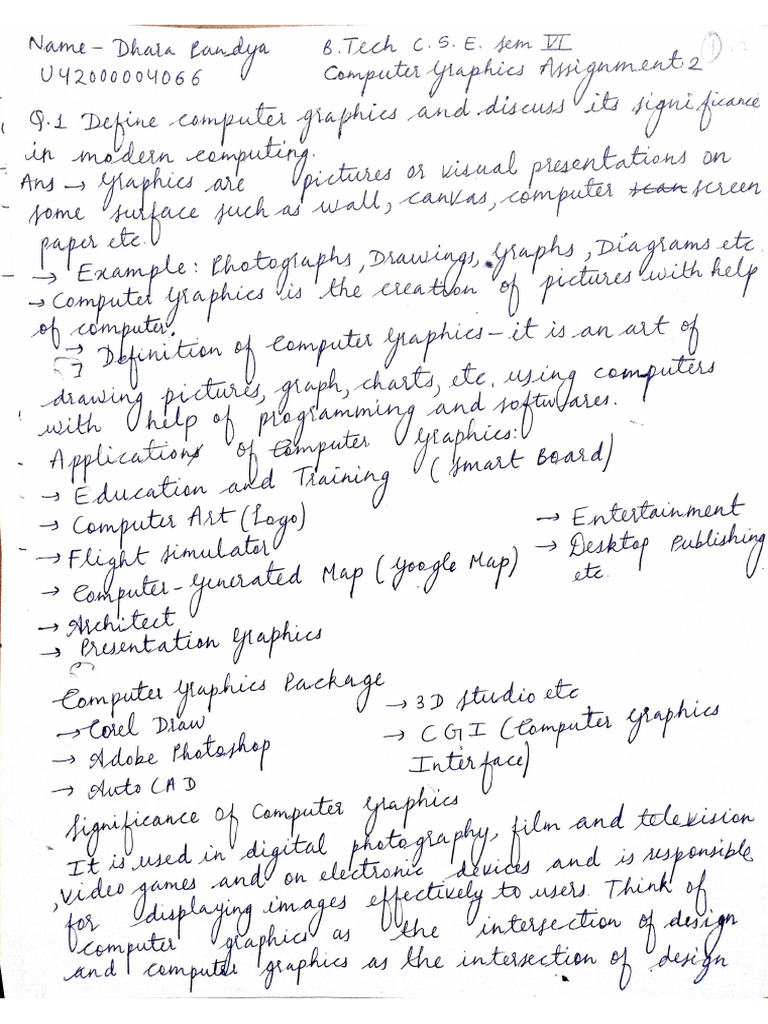 Name - Dhara Pandya B.Tech C.S.E. sem VI 1
U42000004066 Computer Graphics Assignment 2
Q.1 Define computer graphics and discuss its significance
in modern computing.
Ans → Graphics are pictures or visual presentations on
some surface such as wall, canvas, computer scan screen
paper etc.
→ Example: Photographs, Drawings, Graphs, Diagrams etc.
→ Computer Graphics is the creation of pictures with help
of computer.
→ Definition of Computer Graphics - it is an art of
drawing pictures, graph, charts, etc. using computers
with help of programming and softwares.
Application of Computer Graphics:
→ Education and Training (Smart Board)
→ Computer Art (Logo) → Entertainment
→ Flight Simulator → Desktop Publishing
→ Computer-Generated Map (Google Map) etc.
→ Architect
→ Presentation Graphics
Computer Graphics Package
→ Corel Draw → 3D Studio etc
→ Adobe Photoshop → CGI (Computer Graphics
→ Auto CAD Interface)
Significance of Computer Graphics
It is used in digital photography, film and television
, video games and on electronic devices and is responsible
for displaying images effectively to users. Think of
computer graphics as the intersection of design
and computer graphics as the intersection of design